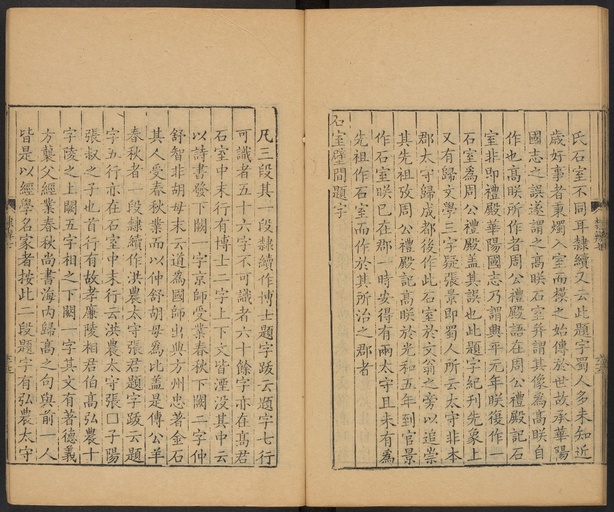 氏石室不同耳隸續又云此題字蜀人多未知近
歲好事者秉燭入室而摸之始傳於世故承華陽
國志之誤遂謂之高朕石室并謂其像為高朕自
作也高朕所作者周公禮殿語在周公禮殿記石
室非即禮殿華陽國志乃謂興平元年朕後作一
石室為周公禮殿蓋其誤也此題字紀刋先象上
又有歸文學三字疑張景即蜀人所云太守非本
郡太守歸成都後作此石室於文翁之旁以追崇
其先祖攷周公禮殿記高朕於光和五年到官景
作石室朕已在郡一時安得有兩太守且未有為
先祖作石室而作於其所治之郡者
石室壁間題字
凡三段其一段隸續作博士題字跋云題字七行
可識者五十六字不可識者六十餘字亦在高君
石室中末行有博士二字上下文皆湮没其中云
以詩書發下闕一字京師受業春秋下闕二字仲
舒智非胡毋末云道為國師出典方州忠著金石
其人受春秋業而以仲舒胡毋為比蓋是傳公羊
春秋者一段隸續作洪農太守張君題字跋云題
字五行亦在石室中末行云洪農太守張囗子陽
張叔之子也首行有故孝廉陵相君伯髙弘農十
字陵之上闕五字相之下闕一字其文有著德義
方襲父經業春秋尚書海内歸高之句與前一人
皆是以經學名家者按此二段題字有弘農太守